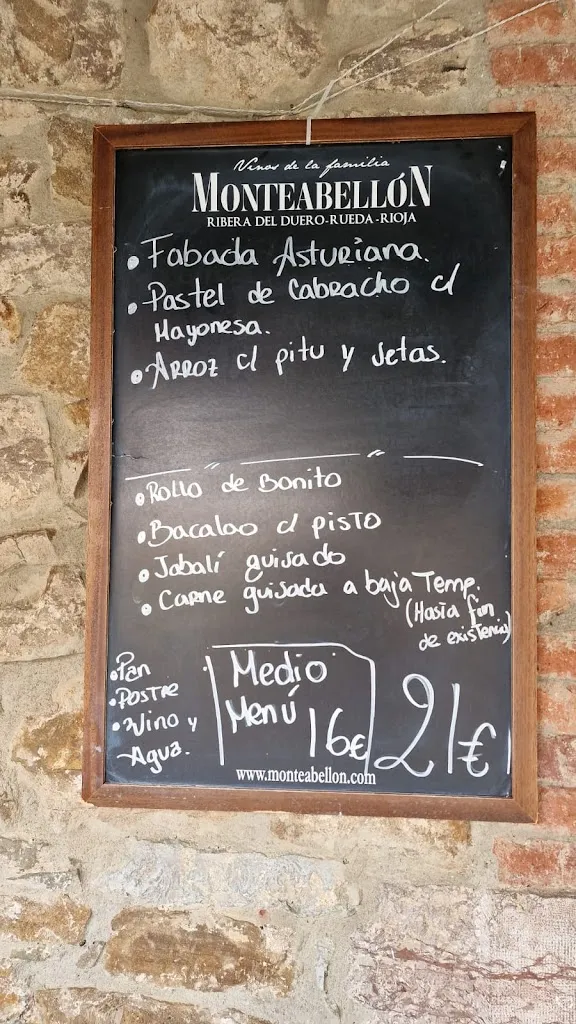 Vinos de la familia
MONTEABELLÓN
RIBERA DEL DUERO-RUEDA-RIOJA
• Fabada Asturiana.
• Pastel de Cabracho c/
Mayonesa.
• Arroz c/ pitu y setas.
• Rollo de Bonito
• Bacalao c/ pisto
• Jabalí guisado
• Carne guisada a baja Temp.
(Hasta fin
de existencia)
• Pan
• Postre
• Vino y
Agua.
Medio
Menú
16€
21€
www.monteabellon.com